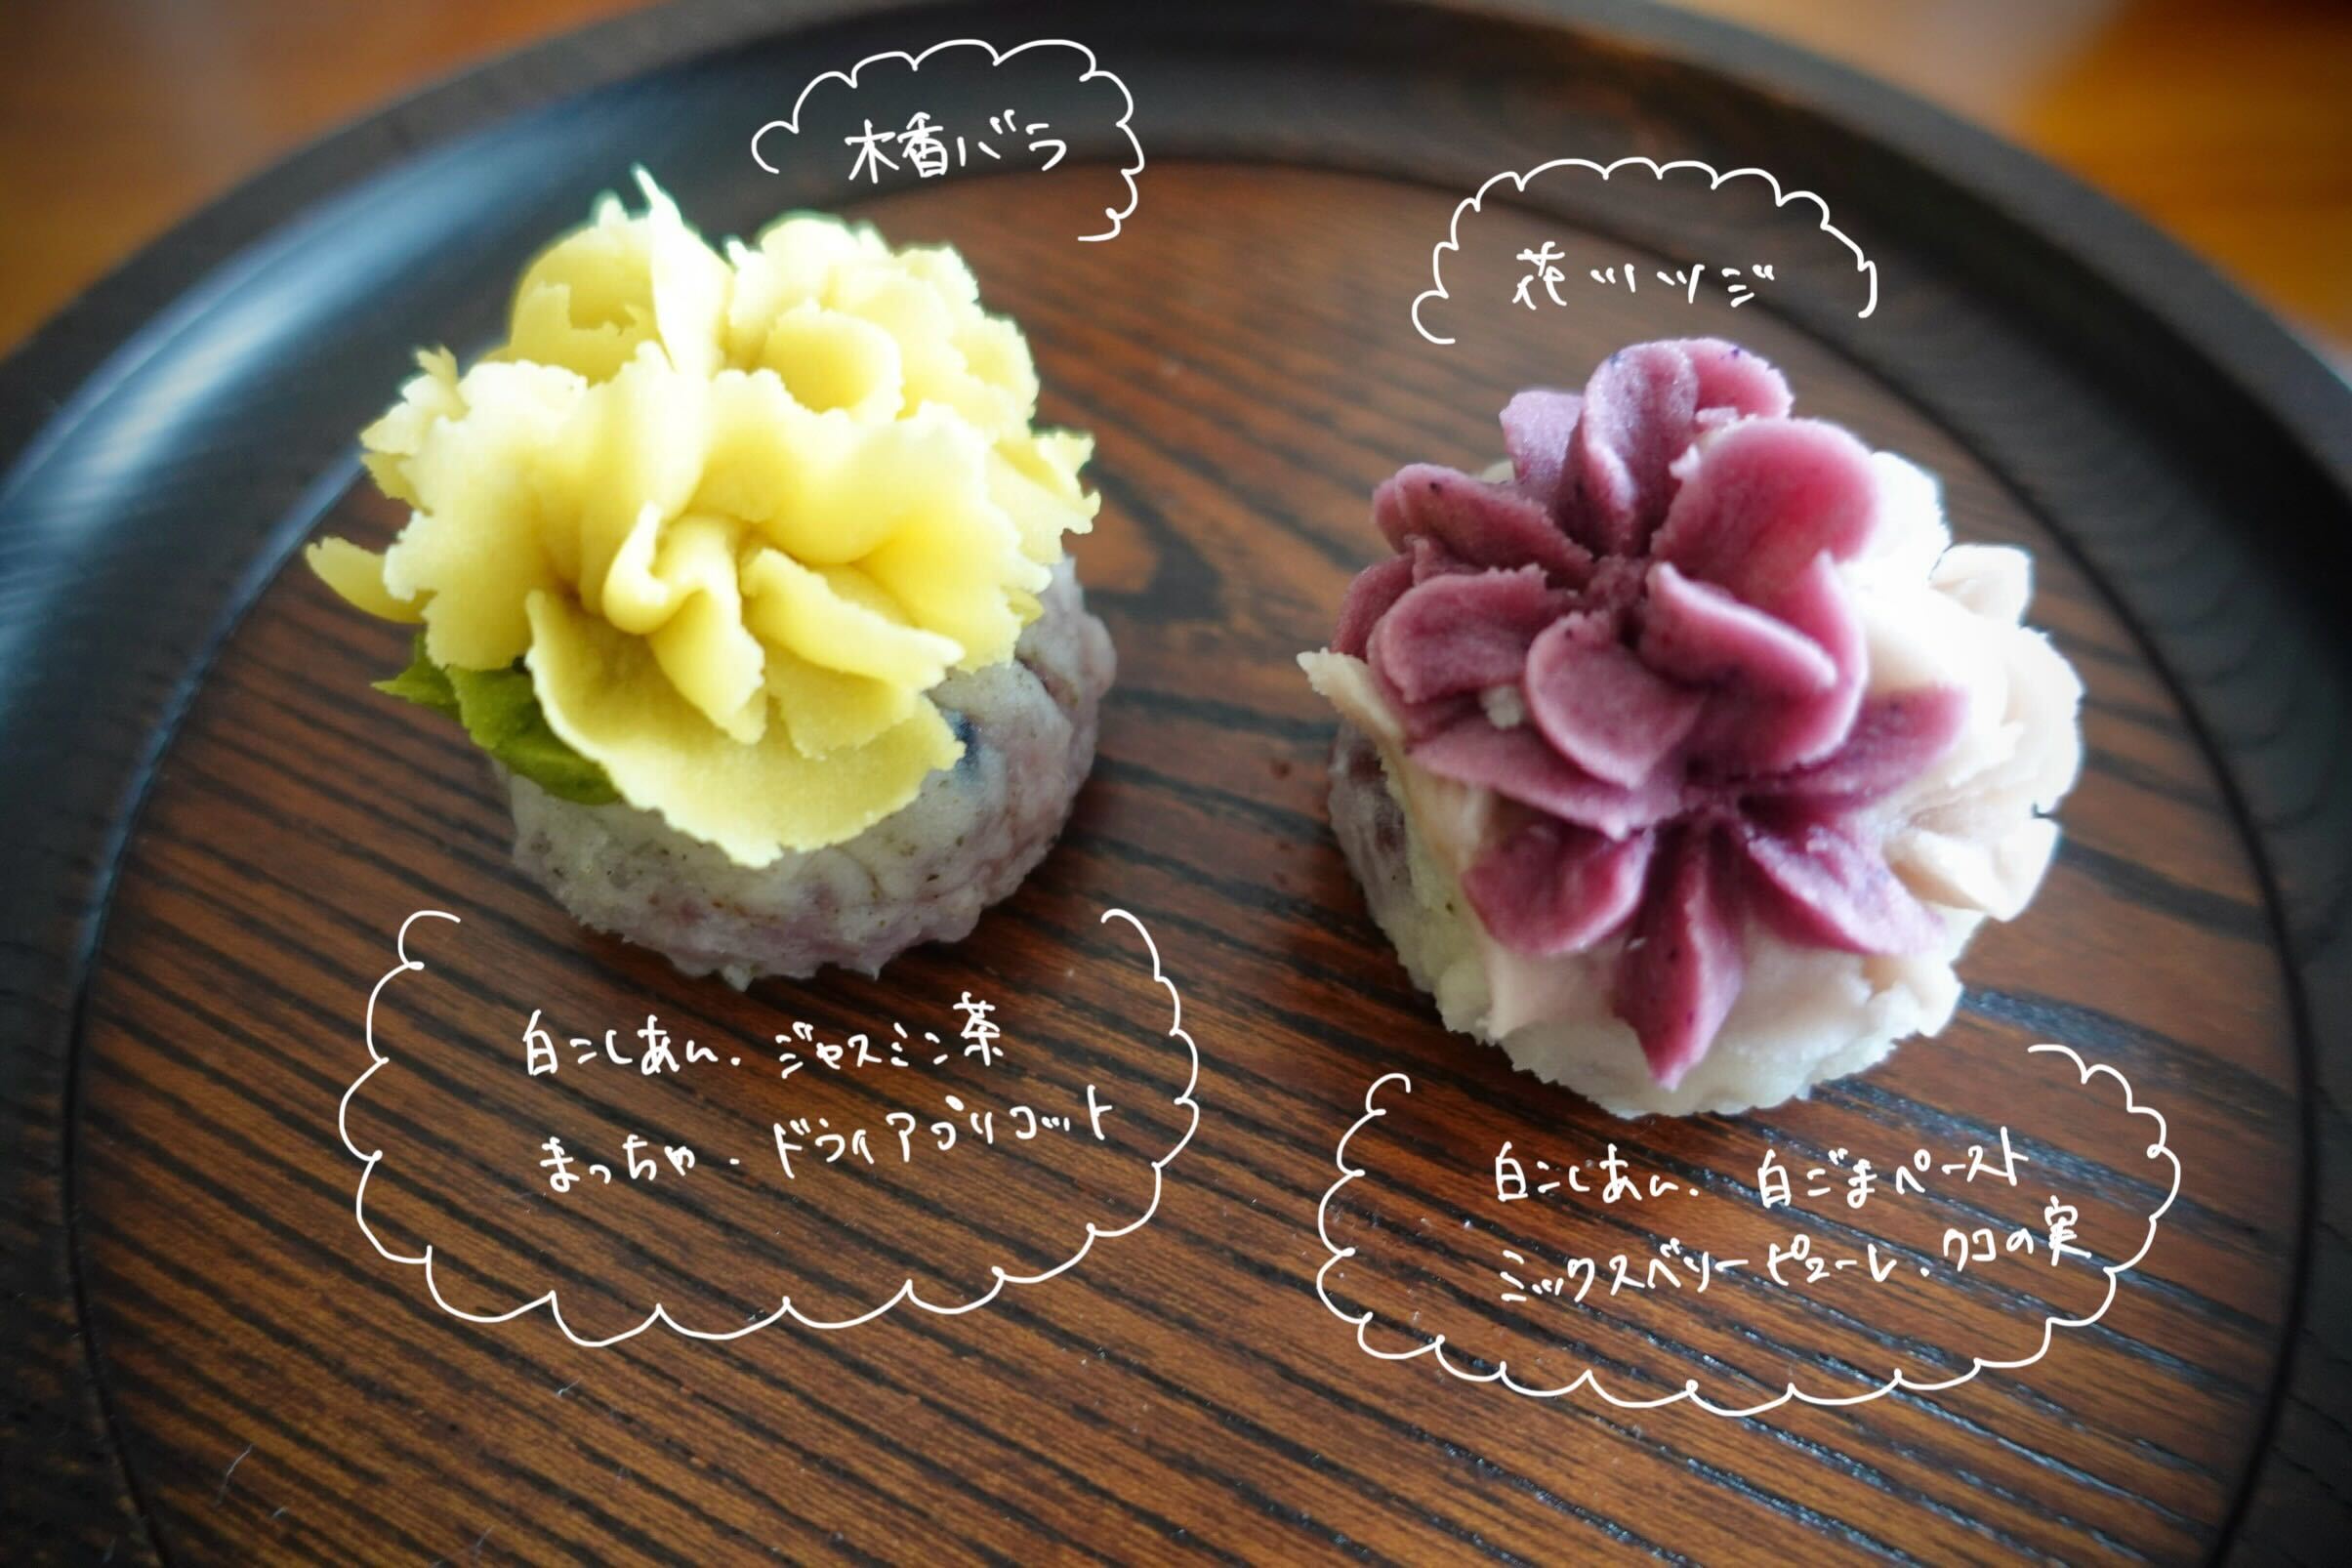 木香バラ
花ツツジ
白こしあん．ジャスミン茶
まっちゃ．ドライアプリコット
白こしあん．白ごまペースト
ミックスベリーピューレ．クコの実